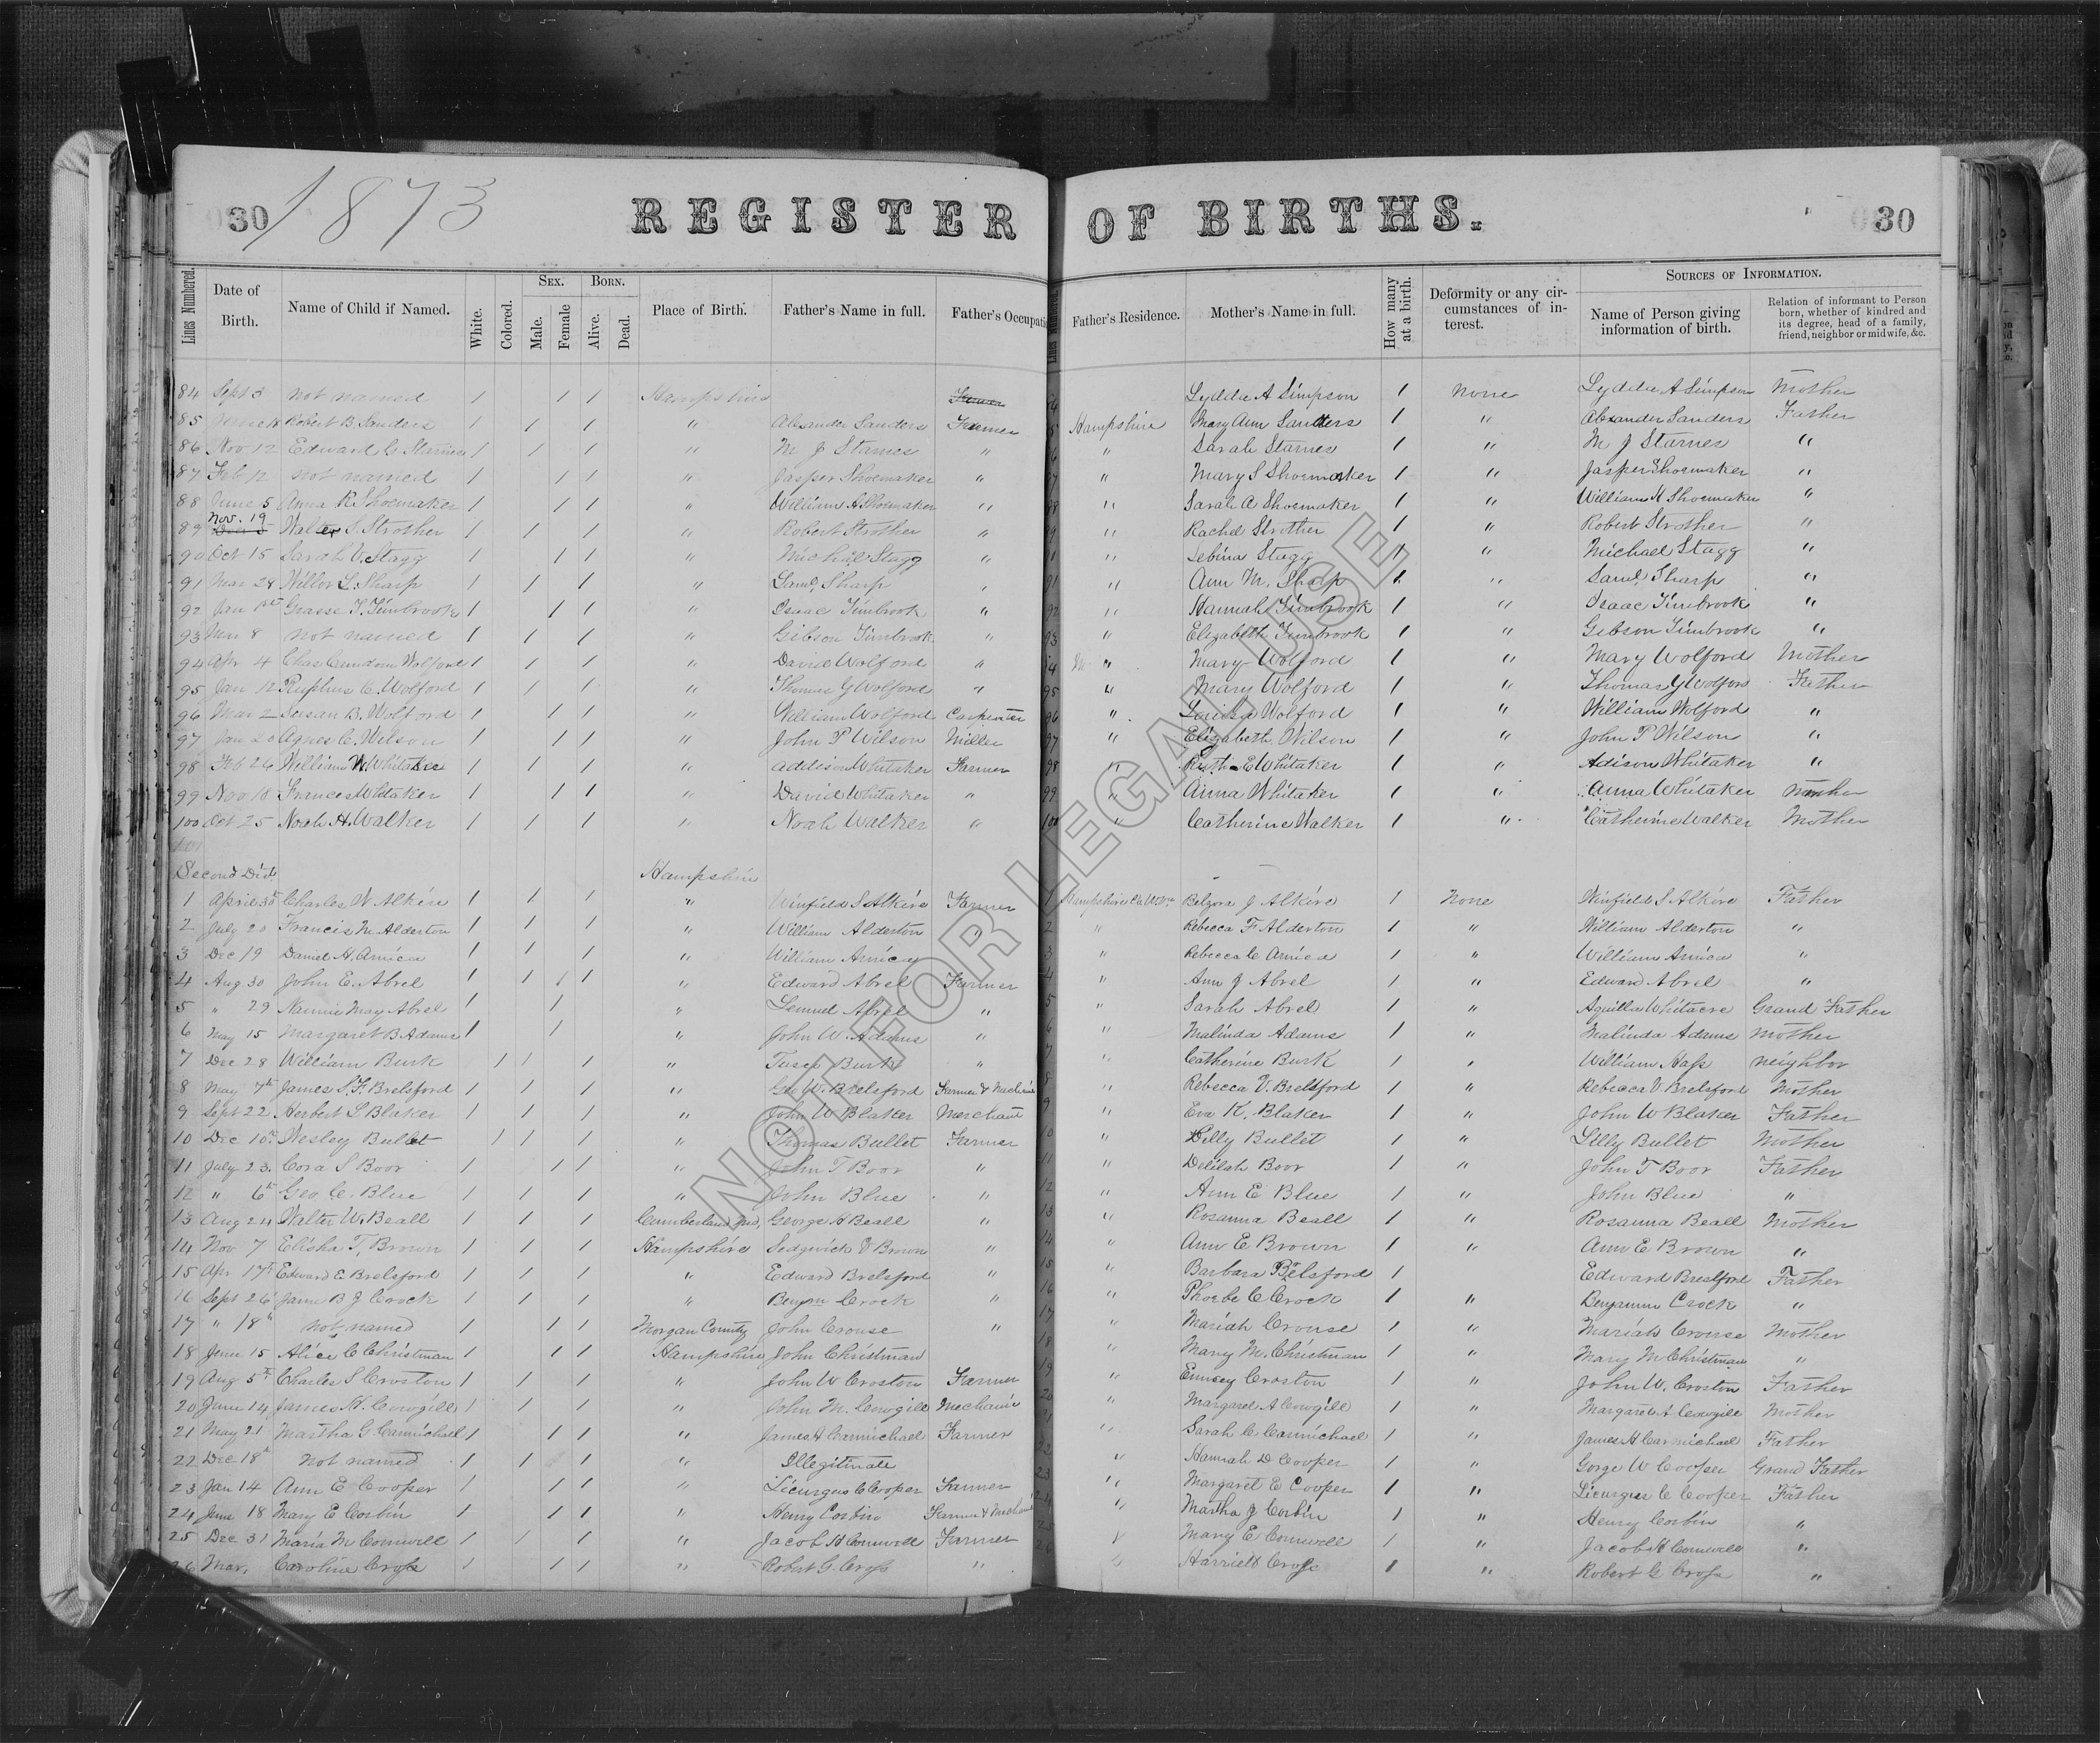 30 1873 REGISTER OF BIRTHS. 30
Lines Numbered. Date of Birth. Name of Child if Named. White. Colored. Sex. Male. Female Born. Alive. Dead. Place of Birth. Father's Name in full. Father's Occupati Father's Residence. Mother's Name in full. How many at a birth. Deformity or any circumstances of interest. Sources of Information. Name of Person giving information of birth. Relation of informant to Person born, whether of kindred and its degree, head of a family, friend, neighbor or midwife, &c.
84 Sept 3 not named 1 1 1 Hampshire Farmer Lydda A Simpson 1 None Lydda A Simpson Mother
85 Robert B. Sanders 1 1 1 " Alexander Sanders Farmer Hampshire Mary Ann Sanders 1 " Alexander Sanders Father
86 Nov 12 Edward C. Starnes 1 1 1 " M J Starnes " " Sarah Starnes 1 " M J Starnes "
87 Feb 12 not named 1 1 1 " Jasper Shoemaker " " Mary S Shoemaker 1 " Jasper Shoemaker "
88 June 5 Anna R. Shoemaker 1 1 1 " William H Shoemaker " " Sarah A Shoemaker 1 " William H Shoemaker "
89 Nov. 19 Walter S. Strother 1 1 1 " Robert Strother " " Rachel Strother 1 " Robert Strother "
90 Oct 15 Sarah V. Stagg 1 1 1 " Michael Stagg " " Sebina Stagg 1 " Michael Stagg "
91 Mar 28 L. Sharp 1 1 1 " Saml. Sharp " " Ann M. Sharp 1 " Saml. Sharp "
92 Jan 1st T. Timbrook 1 1 1 " Isaac Timbrook " " Hannah Timbrook 1 " Isaac Timbrook "
93 Mar 8 not named 1 1 1 " Gibson Timbrook " " Elizabeth Timbrook 1 " Gibson Timbrook "
94 Apr 4 Chas Wolford 1 1 1 " David Wolford " " Mary Wolford 1 " Mary Wolford Mother
95 Jan 12 Ruphus C. Wolford 1 1 1 " Thomas Y Wolford " " Mary Wolford 1 " Thomas Y Wolford Father
96 Mar 2 Susan B. Wolford 1 1 1 " William Wolford Carpenter " Louisa Wolford 1 " William Wolford "
97 Jan 20 Agnes C. Wilson 1 1 1 " John P Wilson Miller " Elizabeth Wilson 1 " John P Wilson "
98 Feb 26 William W. 1 1 1 " Addison Whitaker Farmer " E Whitaker 1 " Adison Whitaker "
99 Nov 18 Frances Whitaker 1 1 1 " David Whitaker " " Anna Whitaker 1 " Anna Whitaker Mother
100 Oct 25 Noah H. Walker 1 1 1 " Noah Walker " " Catherine Walker 1 " Catherine Walker Mother
101
Second Dist. Hampshire
1 April 30 Charles W Alkire 1 1 1 " Winfield S Alkire Farmer Hampshire Co W Va Belzora J Alkire 1 None Winfield S Alkire Father
2 July 20 Francis M Alderton 1 1 1 " William Alderton " " Rebecca F Alderton 1 " William Alderton "
3 Dec 19 Daniel H. Amica 1 1 1 " William Amica " Rebecca C Amica 1 " William Amica "
4 Aug 30 John E. Abrel 1 1 1 1 " Edward Abrel Farmer " Ann J Abrel 1 " Edward Abrel "
5 " 29 Nannie May Abrel 1 1 " Lemuel Abrel " " Sarah Abrel 1 " Aquilla Whitacre Grand Father
6 May 15 Margaret B Adams 1 1 " John W. Adams " " Malinda Adams 1 " Malinda Adams Mother
7 Dec 28 William Burk 1 1 1 " Burk " " Catherine Burk 1 " William neighbor
8 May 7th James S. F. Brelsford 1 1 1 " Geo W. Brelsford Farmer & Mechanic " Rebecca V. Brelsford 1 " Rebecca V. Brelsford Mother
9 Sept 22 Herbert S Blaker 1 1 1 " John W Blaker Merchant " Eva K. Blaker 1 " John W Blaker Father
10 Dec 10th Wesley Bullet 1 1 1 " Thomas Bullet Farmer " Lilly Bullet 1 " Lilly Bullet Mother
11 July 23. Cora S Boor 1 1 1 " John T Boor " " Delilah Boor 1 " John T Boor Father
12 " 6th Geo C. Blue 1 1 1 " John Blue " " Ann E Blue 1 " John Blue "
13 Aug 24 Walter W. Beall 1 1 1 Cumberland Md, George H Beall " " Rosanna Beall 1 " Rosanna Beall Mother
14 Nov 7 Elisha T. Brown 1 1 1 Hampshire Sedgwick V Brown " " Ann E Brown 1 " Ann E Brown "
15 Apr 17th Edward E Brelsford 1 1 1 " Edward Brelsford " " Barbara Brelsford 1 Edward Breslford Father
16 Sept 26 James B J Crock 1 1 1 " Benjm Crock " " Phoebe C Crock 1 " Benjamin Crock "
17 " 18th not named 1 1 1 Morgan County John Crouse " " Mariah Crouse 1 " Mariah Crouse Mother
18 June 15 Alice C Christman 1 1 1 Hampshire John Christman " Mary M. Christman 1 " Mary M Christman "
19 Aug 5th Charles S Croston 1 1 1 " John W Croston Farmer " Croston 1 " John W. Croston Father
20 June 14 James H. Cowgill 1 1 1 " John M. Cowgill Mechanic " Margaret A Cowgill 1 " Margaret A Cowgill Mother
21 May 21 Martha G. Carmichael 1 1 1 " James H Carmichael Farmer " Sarah C Carmichael 1 " James H Carmichael Father
22 Dec 18th not named 1 1 1 " Illegitimate " Hannah D Cooper 1 " Gorge W Cooper Grand Father
23 Jan 14 Ann E Cooper 1 1 1 " Licurgus C Cooper Farmer " Margaret E Cooper 1 " Licurgus C Cooper Father
24 June 18 Mary E Corbin 1 1 1 " Henry Corbin Farmer & Mechanic " Martha J Corbin 1 " Henry Corbin "
25 Dec 31 Maria M Cornwell 1 1 1 " Jacob H Cornwell Farmer " Mary E Cornwell 1 " Jacob H Cornwell "
26 Mar. Caroline Cross 1 1 1 " Robert G. Cross " " Harriett Cross 1 " Robert G Cross "
NOT FOR LEGAL USE